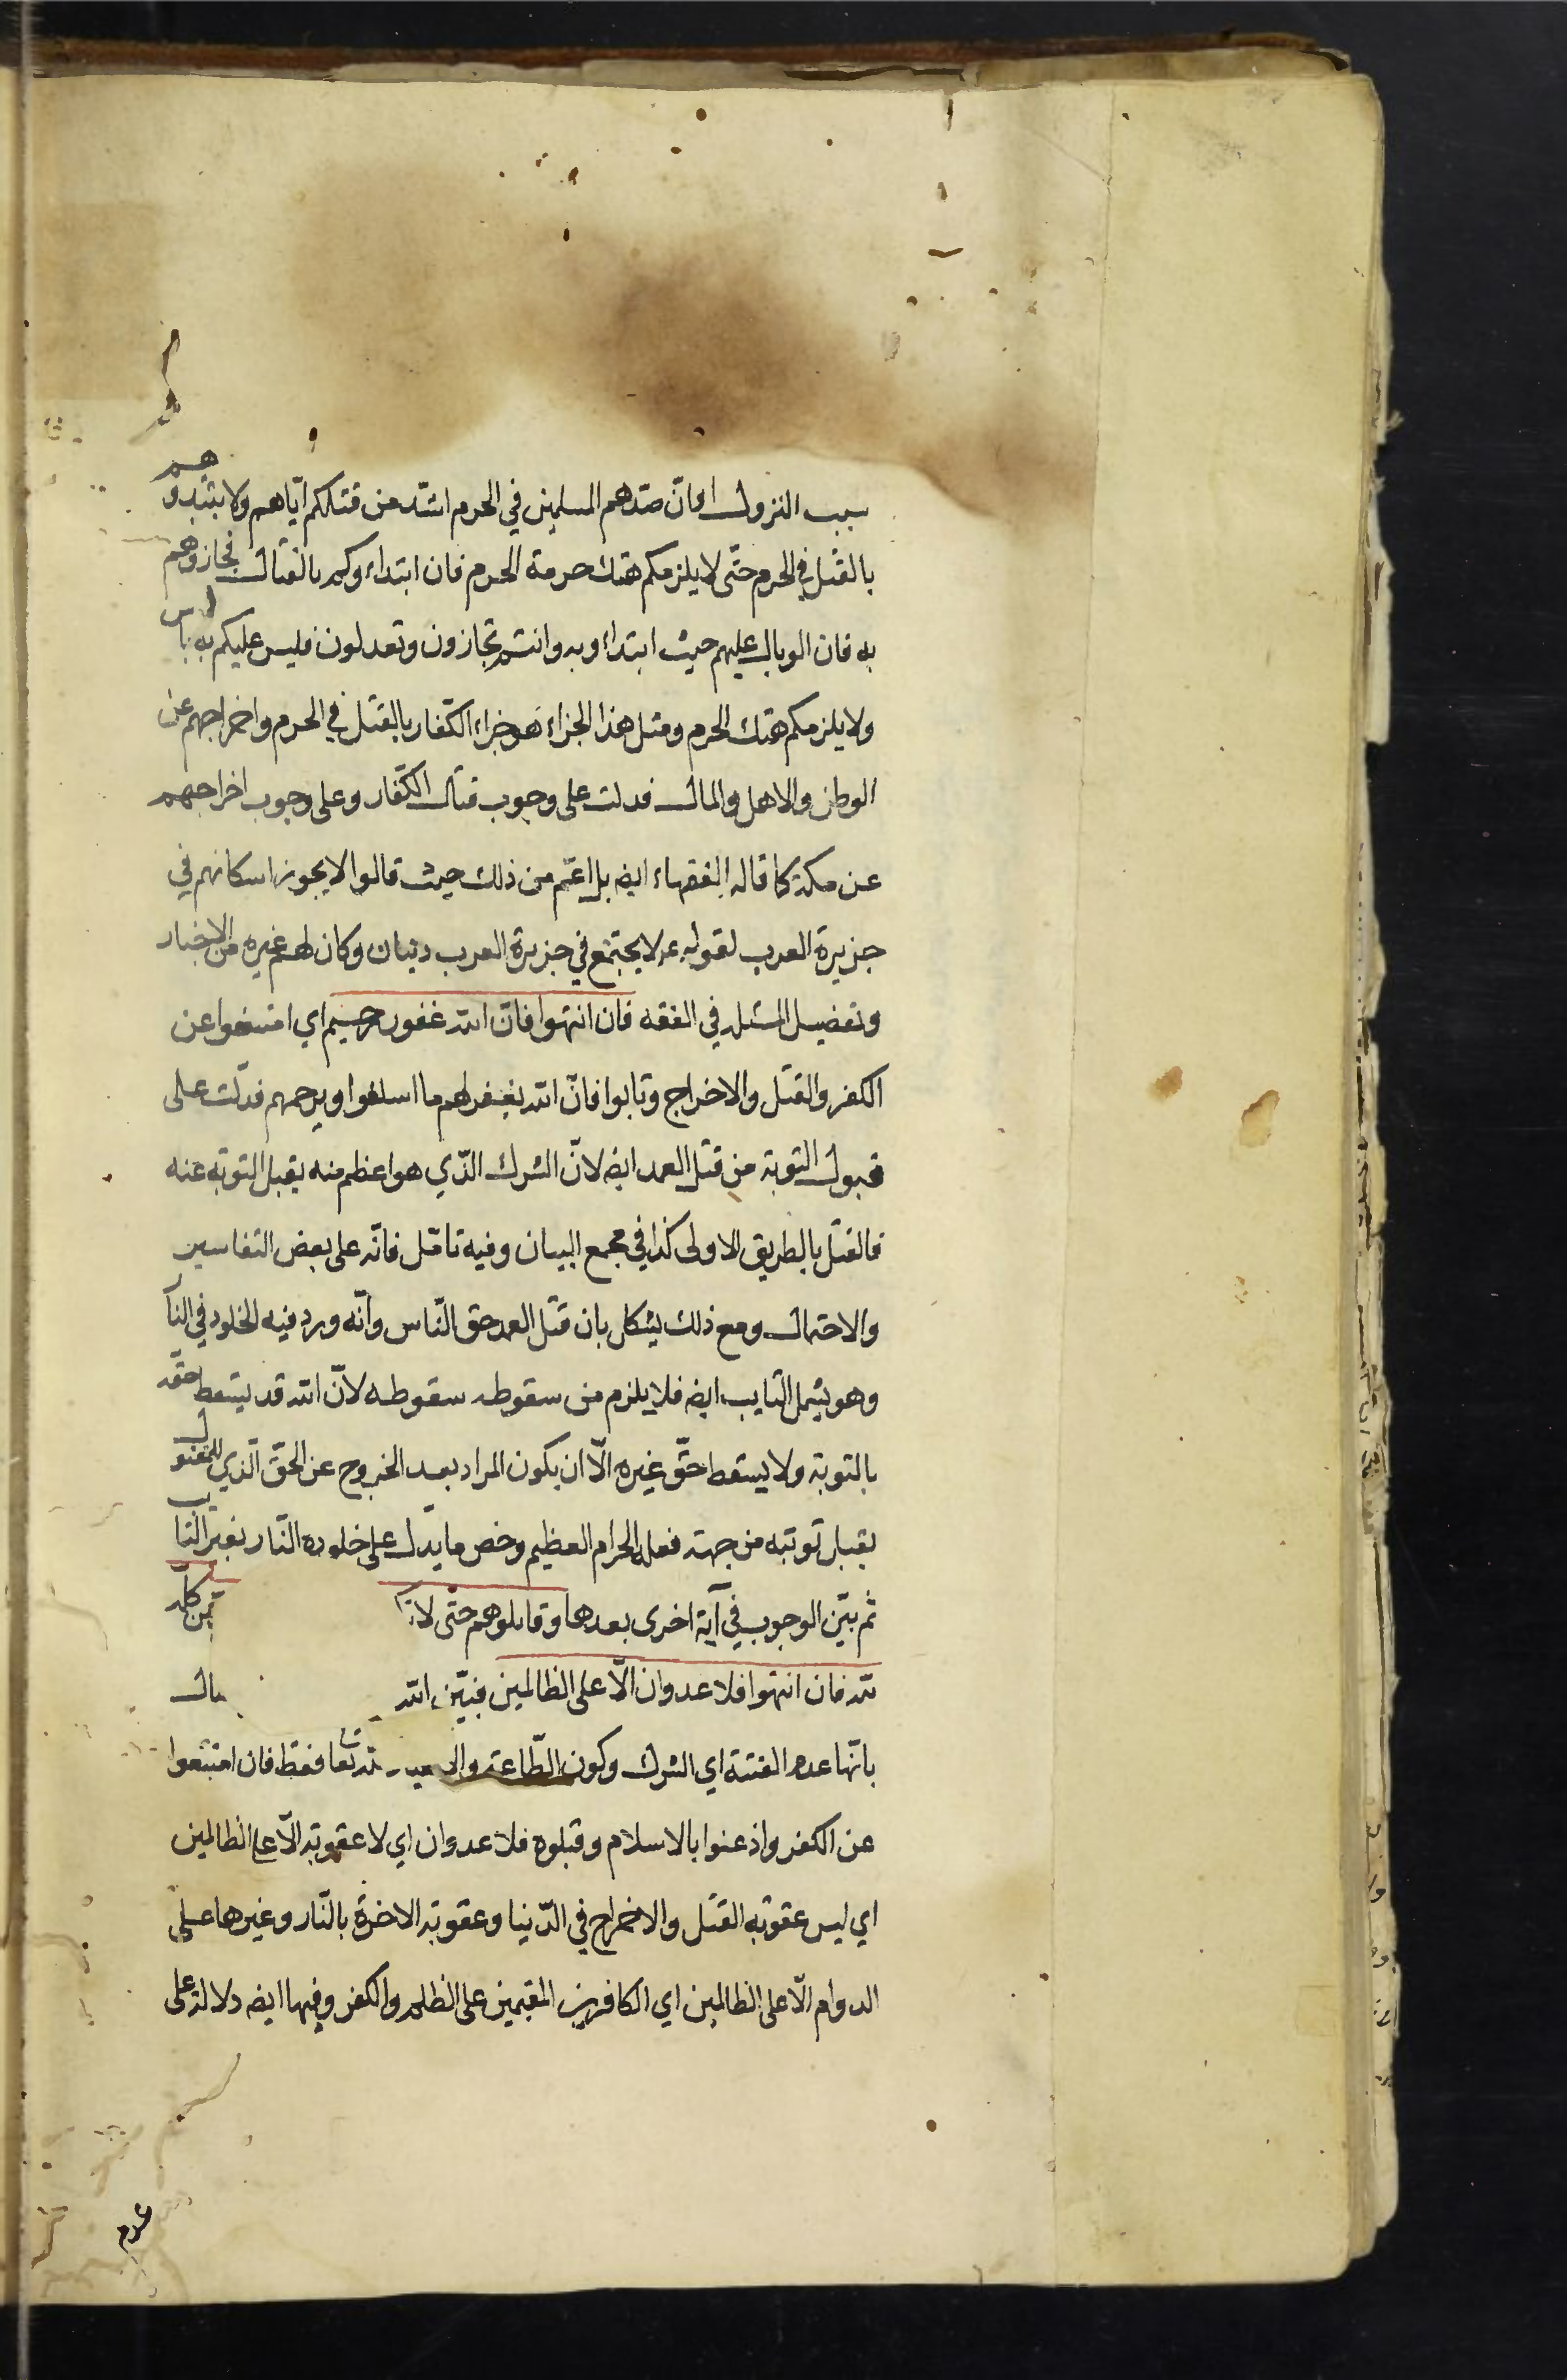 سبب النزول او انّ صدّهم المسلمين في الحرم اشدّ من قتلكم ايّاهم ولا تبتدؤهم
بالقتل في الحرم حتّى لا يلزمكم هتك حرمة الحرم فان ابتداؤكم بالقتال فجازوهم
به فان الوبال عليهم حيث ابتداؤ به وانتم تجازون وتعدلون فليس عليكم به بأس
ولا يلزمكم هتك الحرم ومثل هذا الجزاء هو جزاء الكفّار بالقتل في الحرم واخراجهم عن
الوطن والاهل والمال فدلت على وجوب قتال الكفّار وعلى وجوب اخراجهم
عن مكة كما قاله الفقهاء ايضه بل اعّم من ذلك حيث قالوا لا يجوز اسكانهم في
جزيرة العرب لقوله عم لا يجتمع في جزيرة العرب دينان وكان لهم غيره من الاخبار
وتفصيل المسئلة في الفقه فان انتهوا فانّ الله غفور رحيم اي امتنعوا عن
الكفر والقتل والاخراج وتابوا فانّ الله يغفر لهم ما اسلفوا ويرحمهم فدلّت على
قبول التوبة من قتل العمد ايضه لانّ الشرك الذّي هو اعظم منه يقبل التوبة عنه
فالقتل بالطريق الاولى كذا في مجمع البيان وفيه تامّل فانّه على بعض التفاسير
والاحتمال ومع ذلك يشكل بان قتل العمد حق النّاس وانّه ورد فيه الخلود في النار
وهو يشمل التايب ايضه فلا يلزم من سقوطه سقوطه لانّ الله قد يسقط حقّه
بالتوبة ولا يسقط حقّ غيره الّا ان يكون المراد بعد الخروج عن الحقّ الّذي للمقتول
يقبل توبته من جهة فعله الحرام العظيم وخص ما يدّل على خلوده النّار بغير التايب
ثم بيّن الوجوب في آية اخرى بعدها وقاتلوهم حتّى لا ين كله
لله فان انتهوا فلا عدوان الّا على الظالمين فبيّن الله
بانّها عدم الفتنة اي الشرك وكون الطّاعة وال لله تعا فقط فان امتنعوا
عن الكفر واذعنوا بالاسلام وقبلوه فلا عدوان اي لا عقوبة الّا على الظالمين
اي ليس عقوبة القتل والاخراج في الدّنيا وعقوبة الاخرة بالنّار وغيرها على
الدوام الّا على الظالمين اي الكافرين المقيمين على الظلم والكفر وفيها ايضه دلالة على
عدم